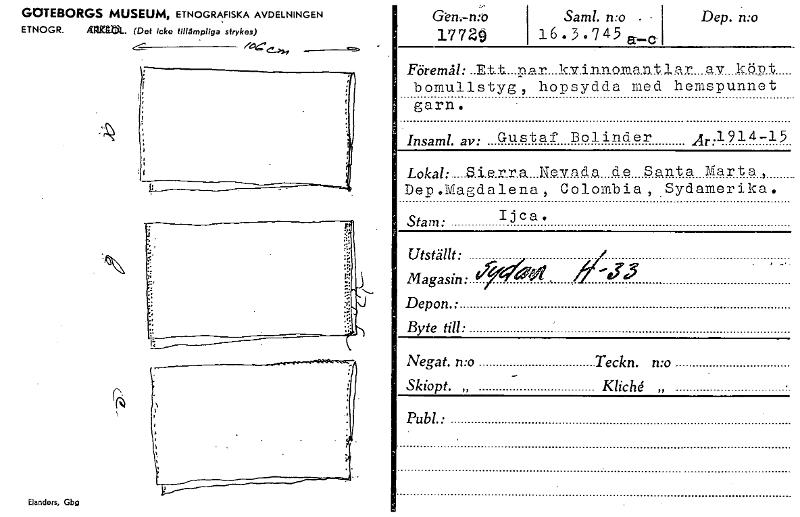 GÖTEBORGS MUSEUM, ETNOGRAFISKA AVDELNINGEN
ETNOGR. ARKEOL. (Det icke tillämpliga strykes)
106 cm
a
b
c
Elanders, Gbg
Gen.-n:o Saml. n:o Dep. n:o
17729 16.3.745 a-c
Föremål: Ett par kvinnomantlar av köpt
bomullstyg, hopsydda med hemspunnet
garn.
Insaml. av: Gustaf Bolinder År: 1914-15
Lokal: Sierra Nevada de Santa Marta,
Dep.Magdalena, Colombia, Sydamerika.
Stam: Ijca.
Utställt:
Magasin: Sydam H-33
Depon.:
Byte till:
Negat. n:o Teckn. n:o
Skiopt. „ Kliché „
Publ.: